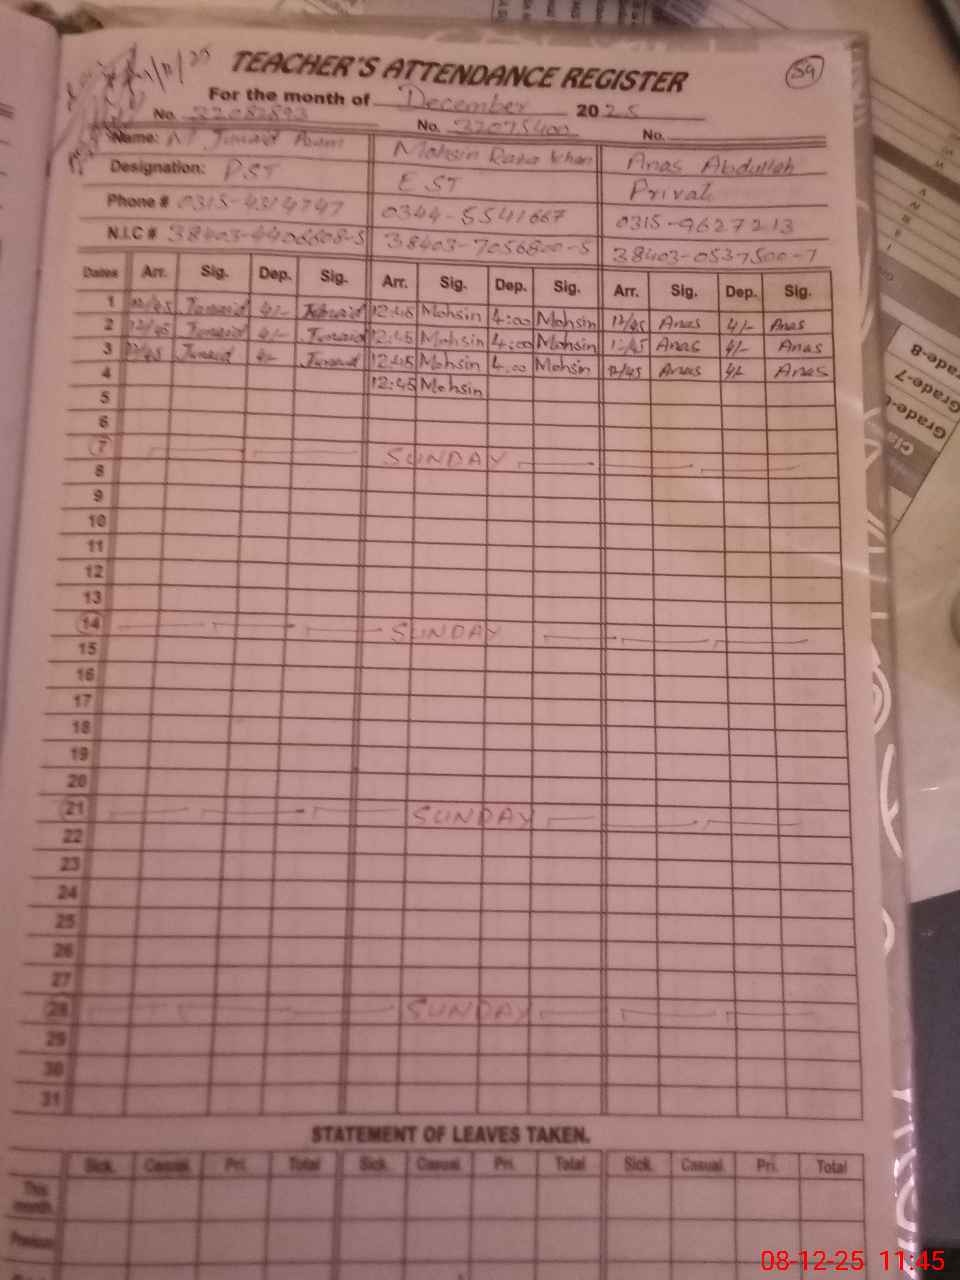 TEACHER'S ATTENDANCE REGISTER
59
For the month of December 2025
No. 32082893 No. 32075400 No.
Name: M Junaid Anum Mohsin Raza Khan Anas Abdullah
Designation: PST EST Privat
Phone # 0315-4314747 0344-5541667 0315-9627213
N.I.C # 38403-4406608-5 38403-7056800-5 38403-0537500-7
Dates Arr. Sig. Dep. Sig. Arr. Sig. Dep. Sig. Arr. Sig. Dep. Sig.
1 12/45 Junaid 4/- Junaid 12:45 Mohsin 4:00 Mohsin 12/45 Anas 4/- Anas
2 12/45 Junaid 4/- Junaid 12:45 Mohsin 4:00 Mohsin 12/45 Anas 4/- Anas
3 12/45 Junaid 4/- Junaid 12:45 Mohsin 4:00 Mohsin 12/45 Anas 4/- Anas
4 12:45 Mohsin
5
6
7 SUNDAY
8
9
10
11
12
13
14 SUNDAY
15
16
17
18
19
20
21 SUNDAY
22
23
24
25
26
27
28 SUNDAY
29
30
31
STATEMENT OF LEAVES TAKEN.
Sick. Casual Pri. Total Sick. Casual Pri. Total Sick. Casual Pri. Total
This month.
Previous
Grade-8
Grade-7
Grade-6
08-12-25 11:45